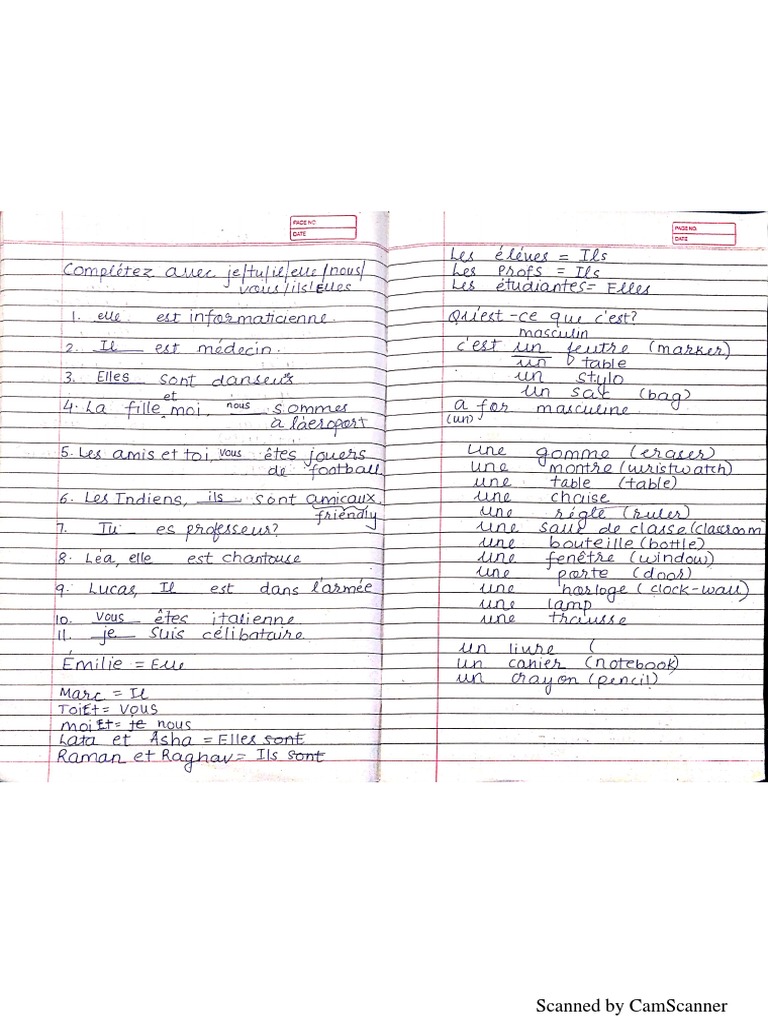 PAGE NO.
DATE
Complétez avec je/tu/il/elle/nous/
vous/ils/Elles
1. elle est informaticienne.
2. Il est médecin.
3. Elles sont danseux
4. La fille et moi, nous sommes
à l'aéroport
5. Les amis et toi, vous êtes jouers
de football
6. Les Indiens, ils sont amicaux.
friendly
7. Tu es professeur?
8. Léa, elle est chantouse
9. Lucas, Il est dans l'armée
10. vous êtes italienne
11. je suis célibataire.
Émilie = Elle
Marc = Il
Toi Et = vous
moi Et = je nous
Lata et Asha = Elles sont
Raman et Raghav = Ils sont
PAGE NO.
DATE
Les éléves = Ils
Les Profs = Ils
Les étudiantes = Elles
Qu'est-ce que c'est?
masculin
c'est un feutre (marker)
un table
un stylo
un sac (bag)
a for masculine
(un)
une gomme (eraser)
une montre (wristwatch)
une table (table)
une chaise
une régle (ruler)
une salle de classe (classroom
une bouteille (bottle)
une fenêtre (window)
une porte (door)
une horloge (clock-wall)
une lamp
une trousse
un livre (
un cahier (notebook)
un crayon (pencil)
Scanned by CamScanner